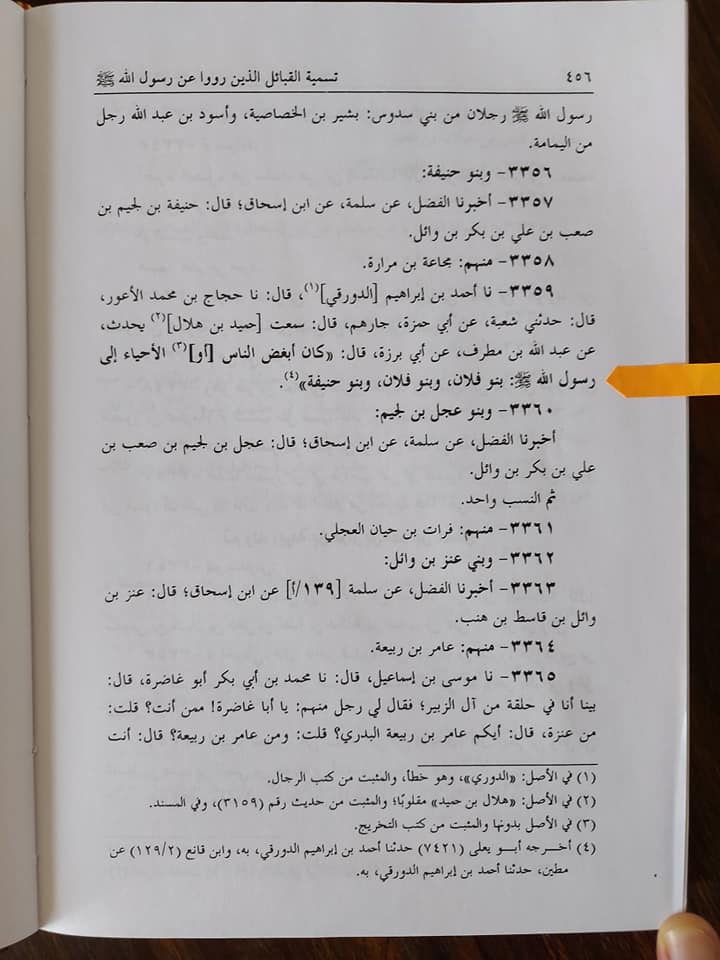 ٤٥٦ تسمية القبائل الذين رووا عن رسول الله ﷺ
رسول الله ﷺ رجلان من بني سدوس: بشير بن الخصاصية، وأسود بن عبد الله رجل
من اليمامة.
٣٣٥٦- وبنو حنيفة:
٣٣٥٧- أخبرنا الفضل، عن سلمة، عن ابن إسحاق؛ قال: حنيفة بن لجيم بن
صعب بن علي بن بكر بن وائل.
٣٣٥٨- منهم: مجاعة بن مرارة.
٣٣٥٩- نا أحمد بن إبراهيم [الدورقي](١)، قال: نا حجاج بن محمد الأعور،
قال: حدثني شعبة، عن أبي حمزة، جارهم، قال: سمعت [حميد بن هلال](٢) يحدث،
عن عبد الله بن مطرف، عن أبي برزة، قال: «كان أبغض الناس [أو](٣) الأحياء إلى
رسول الله ﷺ: بنو فلان، وبنو فلان، وبنو حنيفة»(٤).
٣٣٦٠- وبنو عجل بن لجيم:
أخبرنا الفضل، عن سلمة، عن ابن إسحاق؛ قال: عجل بن لجيم بن صعب بن
علي بن بكر بن وائل.
ثم النسب واحد.
٣٣٦١- منهم: فرات بن حيان العجلي.
٣٣٦٢- وبني عنز بن وائل:
٣٣٦٣- أخبرنا الفضل، عن سلمة [١٣٩/أ] عن ابن إسحاق؛ قال: عنز بن
وائل بن قاسط بن هنب.
٣٣٦٤- منهم: عامر بن ربيعة.
٣٣٦٥- نا موسى بن إسماعيل، قال: نا محمد بن أبي بكر أبو غاضرة، قال:
بينا أنا في حلقة من آل الزبير؛ فقال لي رجل منهم: يا أبا غاضرة! ممن أنت؟ قلت:
من عنزة، قال: أيكم عامر بن ربيعة البدري؟ قلت: ومن عامر بن ربيعة؟ قال: أنت
(١) في الأصل: «الدوري»، وهو خطأ، والمثبت من كتب الرجال.
(٢) في الأصل: «هلال بن حميد» مقلوبًا؛ والمثبت من حديث رقم (٣١٥٩)، وفي المسند.
(٣) في الأصل بدونها والمثبت من كتب التخريج.
(٤) أخرجه أبو يعلى (٧٤٢١) حدثنا أحمد بن إبراهيم الدورقي، به، وابن قانع (١٢٩/٢) عن
مطين، حدثنا أحمد بن إبراهيم الدورقي، به.